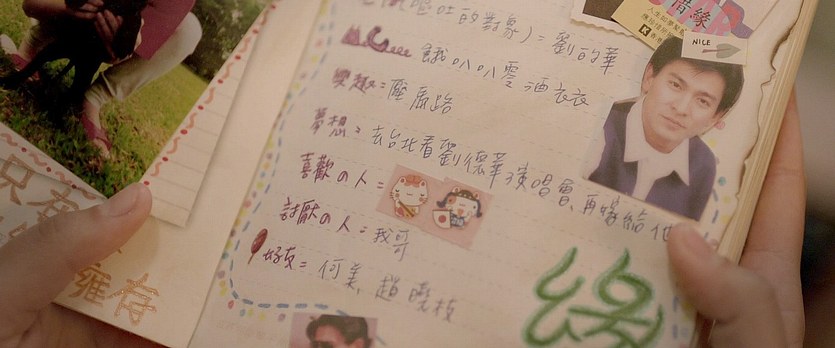 吐的對象)=劉的華
餓叭叭零酒衣衣
興趣=壓馬路
夢想=去台北看劉德華演唱會、再嫁給他
喜歡の人=
討厭の人=我哥
好友=何美、趙曉枝
惜緣
NICE
K
緣
只有
擁存